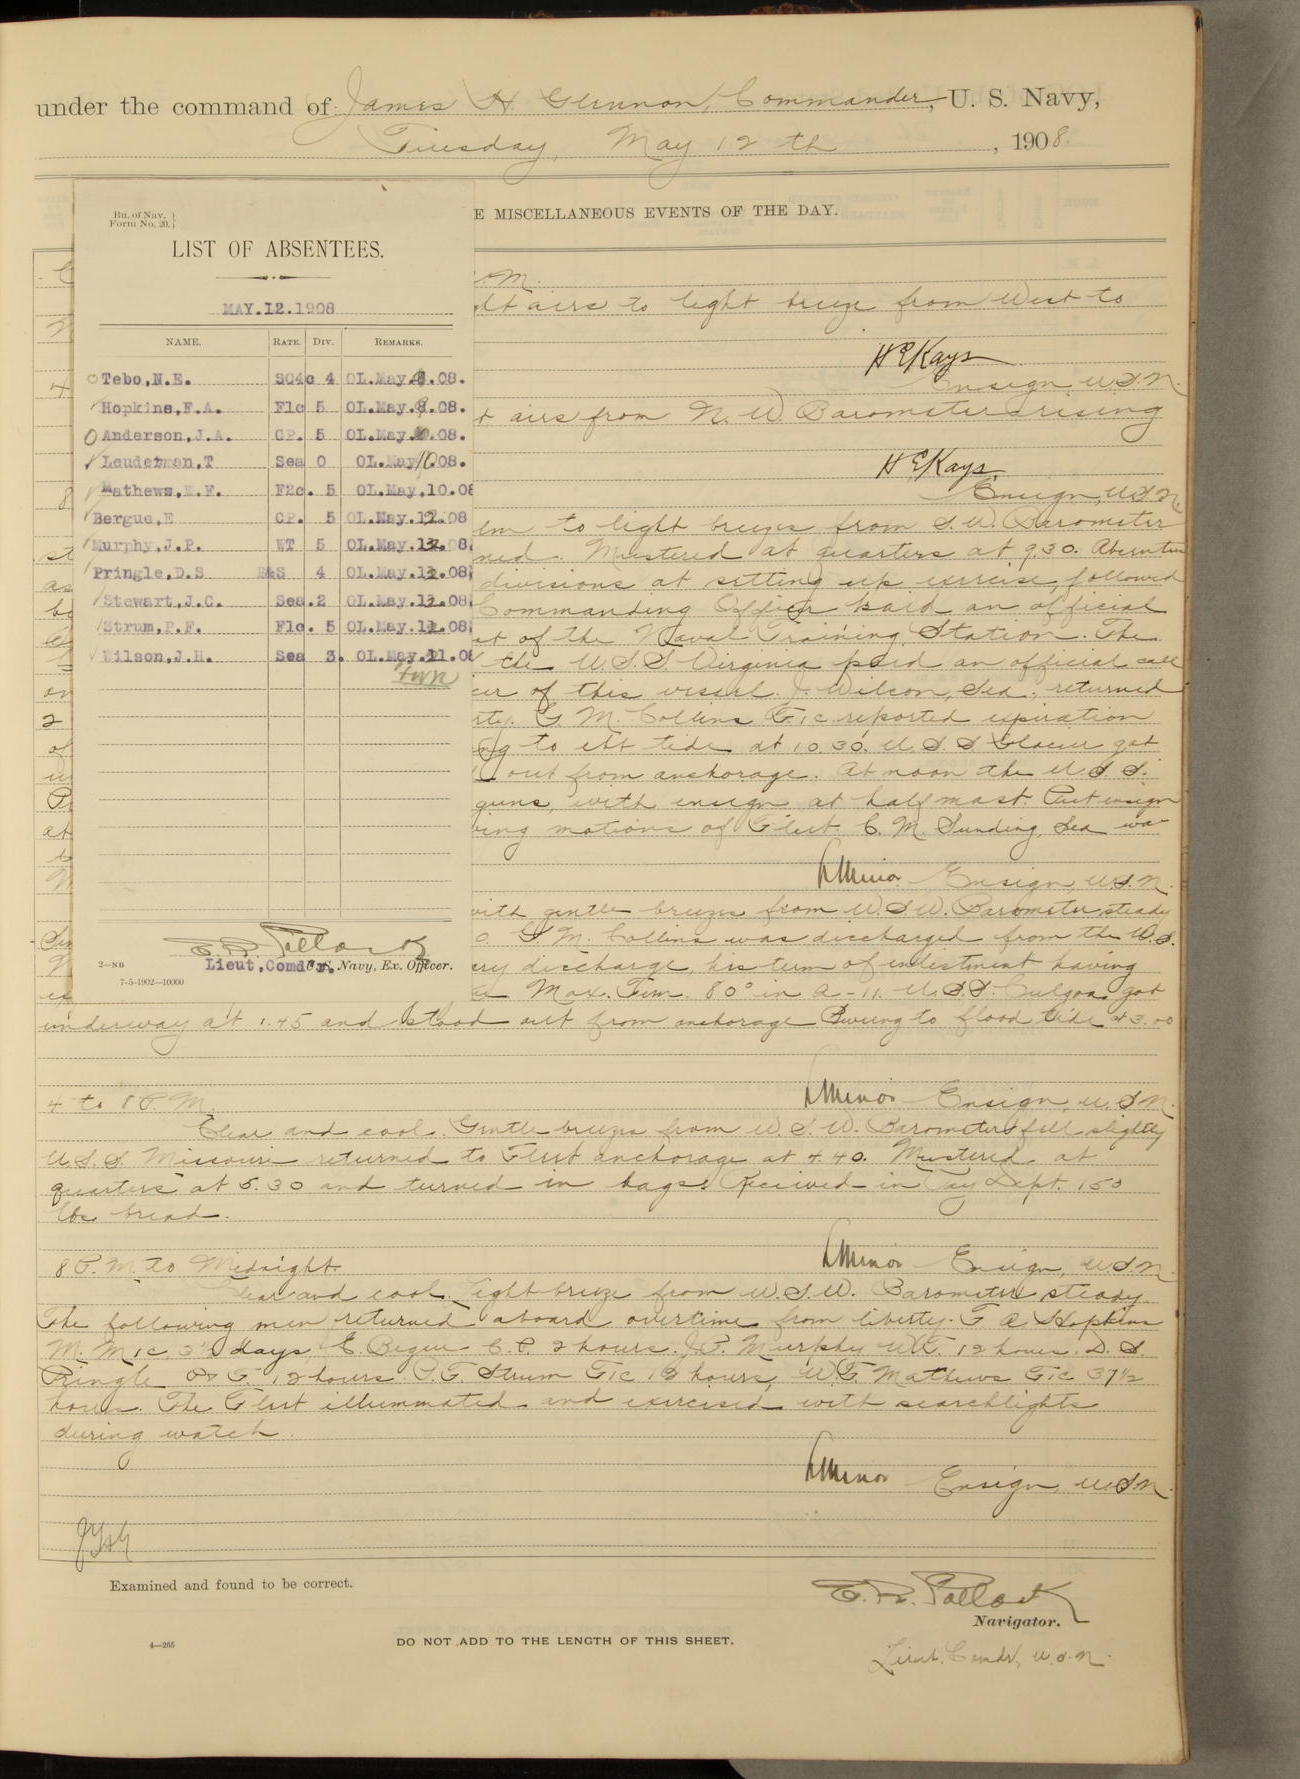 under the command of James H. Glennon, Commander, U. S. Navy,
Tuesday, May 12 th, 1908.
E MISCELLANEOUS EVENTS OF THE DAY.
Bu. of Nav.
Form No. 20.
LIST OF ABSENTEES.
MAY.12.1908
NAME. RATE. DIV. REMARKS.
Tebo,N.E. SC4c 4 OL.May. .08.
Hopkins,F.A. F1c 5 OL.May. .08.
Anderson,J.A. CP. 5 OL.May. .08.
Leuderman,T Sea 0 OL.May 10.08.
Mathews, .F. F2c. 5 OL.May.10.08
Bergue,E CP. 5 OL.May.12.08
Murphy,J.P. WT 5 OL.May.12.08
Pringle,D.S 4 OL.May.12.08
Stewart,J.C. Sea.2 OL.May.12.08
Strum,P.F. F1c. 5 OL.May.12.08
Wilson,J.H. Sea 3. OL.May. .08
E. R. Pollock
Lieut,Comd'r. U. S. Navy, Ex. Officer.
2—NB
7-5-1902—10000
M.
lt airs to light breeze from West to
H E Kays
Ensign U.S.N.
t airs from N. W. Barometer rising
H E Kays,
Ensign, U.S.N.
lm to light breezes from S.W. Barometer
ned. Mustered at quarters at 9.30.
divisions at setting up exercise, followed
Commanding Officer paid an official
nt of the Naval Training Station. The
the U.S.S. Virginia paid an official call
cer of this vessel. J. Wilson, Sea, returned
rty. G. M. Collins F.1c. reported expiration
ng to ebt tide at 10.30. U.S.S. Glacier got
out from anchorage. At noon the U.S.S.
guns, with ensign at half mast.
ing motions of Fleet. C. M. Sunding, Sea was
L Minor Ensign, U.S.N.
with gentle breezes from W.S.W. Barometer steady
G. M. Collins was discharged from the U.S.
ary discharge, his term of enlistment having
Max. Tem. 80° in A-11. U.S.S. Culgoa got
underway at 1.45 and stood out from anchorage Swung to flood tide at 3.00
L Minor Ensign, U.S.N.
4 to 8 P.M.
Clear and cool. Gentle breezes from W.S.W. Barometer fell slightly
U.S.S. Missouri returned to Fleet anchorage at 4.40. Mustered at
quarters at 5.30 and turned in bags. Received in Pay Dept. 150
lbs. bread.
L Minor Ensign, U.S.N.
8 P.M. to Midnight.
Clear and cool. Light breeze from W.S.W. Barometer steady
The following men returned aboard overtime from liberty. F. A Hopkins
M.M1c, 3½ days, E. Begue C.P. 2 hours. J.P. Murphy W.T. 12 hours. D. S.
Pringle 12 hours. P.F. Strum F1c 12 hours, W.F. Mathews F1c 37½
hours. The Fleet illuminated and exercised with searchlights
during watch.
L Minor Ensign, U.S.N.
JHG
Examined and found to be correct.
E. R. Pollock
Navigator.
Lieut. Comdr, U.S.N.
4—265
DO NOT ADD TO THE LENGTH OF THIS SHEET.